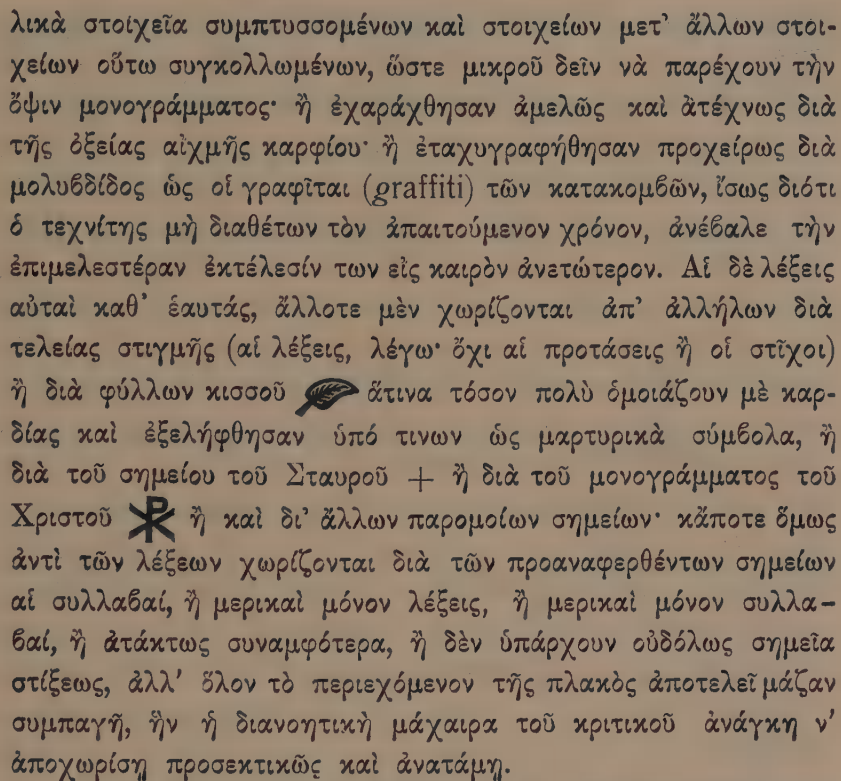 λικὰ στοιχεῖα συμπτυσσομένων καὶ στοιχείων μετ’ ἄλλων στοι-
χείων οὕτω συγκολλωμένων, ὥστε μικροῦ δεῖν νὰ παρέχουν τὴν
ὄψιν μονογράμματος· ἢ ἐχαράχθησαν ἀμελῶς καὶ ἀτέχνως διὰ
τῆς ὀξείας αἰχμῆς καρφίου· ἢ ἐταχυγραφήθησαν προχείρως διὰ
μολυβδίδος ὡς οἱ γραφῖται (graffiti) τῶν κατακομβῶν, ἴσως διότι
ὁ τεχνίτης μὴ διαθέτων τὸν ἀπαιτούμενον χρόνον, ἀνέβαλε τὴν
ἐπιμελεστέραν ἐκτέλεσίν των εἰς καιρὸν ἀνετώτερον. Αἱ δὲ λέξεις
αὐταὶ καθ’ ἑαυτάς, ἄλλοτε μὲν χωρίζονται ἀπ’ ἀλλήλων διὰ
τελείας στιγμῆς (αἱ λέξεις, λέγω· ὄχι αἱ προτάσεις ἢ οἱ στῖχοι)
ἢ διὰ φύλλων κισσοῦ ἅτινα τόσον πολὺ ὁμοιάζουν μὲ καρ-
δίας καὶ ἐξελήφθησαν ὑπό τινων ὡς μαρτυρικὰ σύμβολα, ἢ
διὰ τοῦ σημείου τοῦ Σταυροῦ + ἢ διὰ τοῦ μονογράμματος τοῦ
Χριστοῦ ☧ ἢ καὶ δι’ ἄλλων παρομοίων σημείων· κἄποτε ὅμως
ἀντὶ τῶν λέξεων χωρίζονται διὰ τῶν προαναφερθέντων σημείων
αἱ συλλαβαί, ἢ μερικαὶ μόνον λέξεις, ἢ μερικαὶ μόνον συλλα-
βαί, ἢ ἀτάκτως συναμφότερα, ἢ δὲν ὑπάρχουν οὐδόλως σημεῖα
στίξεως, ἀλλ’ ὅλον τὸ περιεχόμενον τῆς πλακὸς ἀποτελεῖ μάζαν
συμπαγῆ, ἣν ἡ διανοητικὴ μάχαιρα τοῦ κριτικοῦ ἀνάγκη ν’
ἀποχωρίσῃ προσεκτικῶς καὶ ἀνατάμῃ.